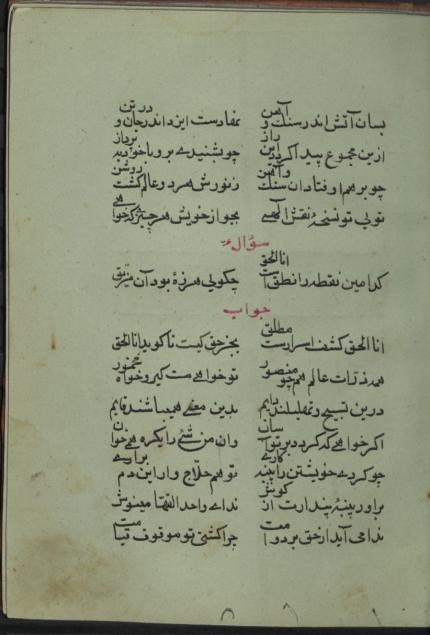 بسان آتش اندر سنك و آهن نهادست ایزد اندر جان و در تن
ازین مجموع پیدا کرد این راز چو بشنیدے برو با خود بپرداز
چو برهم اوفتاد ان سنك و آهن ز نورش هر دو عالم کشت روشن
تویی تو نسخهٔ نقش الهے بجو از خویش هر چیزے که خواهے
سؤال
کدامین نقطه را نطق است انا الحق چکویی هرزهٔ بود آن
جواب
انا الحق کشف اسرارست مطلق بجز حق کیست تا کوید انا الحق
همه ذرات عالم همچو منصور تو خواهے مست کیر و خواه مخمور
درین تسبیح و تهلیلند دایم بدین معنے همیباشند قایم
اکر خواهے که کردد بر تو آسان وان من شئ را یکره هے خوان
چو کردے خویشتن را پنبه کارے تو هم حلاج وار این دم برارے
براور پنبهٔ پندارت از کوش نداے واحد القهار مینوش
ندا می آید از حق بر دوامت چرا کشتی تو موقوف قیامت